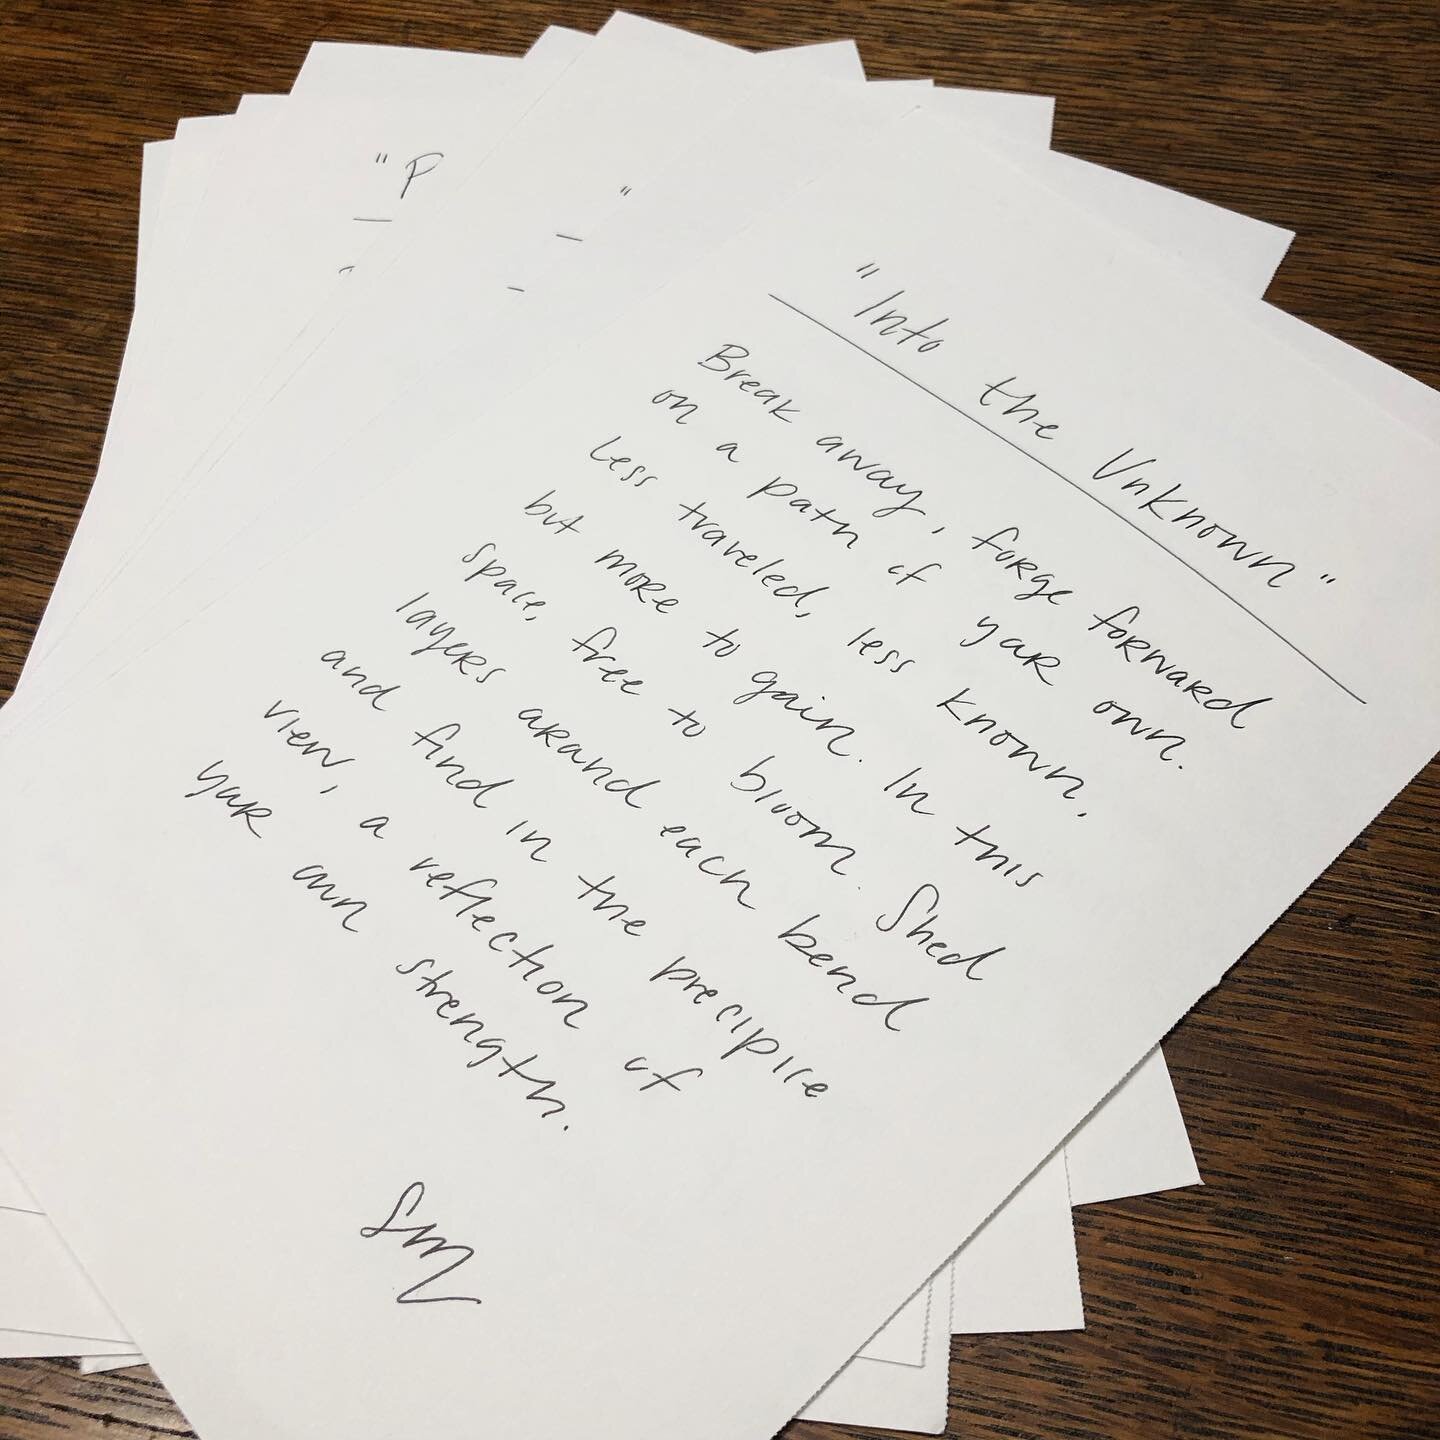 "Into the Unknown"
Break away, forge forward
on a path of your own.
Less traveled, less known,
but more to gain. In this
space, free to bloom. Shed
layers around each bend
and find in the precipice
view, a reflection of
your own strength.
SM
"P
"